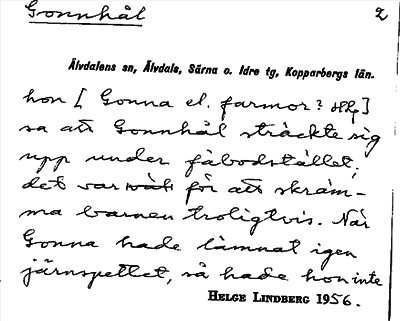 Gonnhål 2
Älvdalens sn, Älvdals, Särna o. Idre tg, Kopparbergs län.
hon [Gonna el. farmor? HLg]
sa att Gonnhål sträckte sig
upp under fäbodstället,
det var för att skräm-
ma barnen troligtvis. När
Gonna hade lämnat igen
järnspettet, så hade hon inte
HELGE LINDBERG 1956.